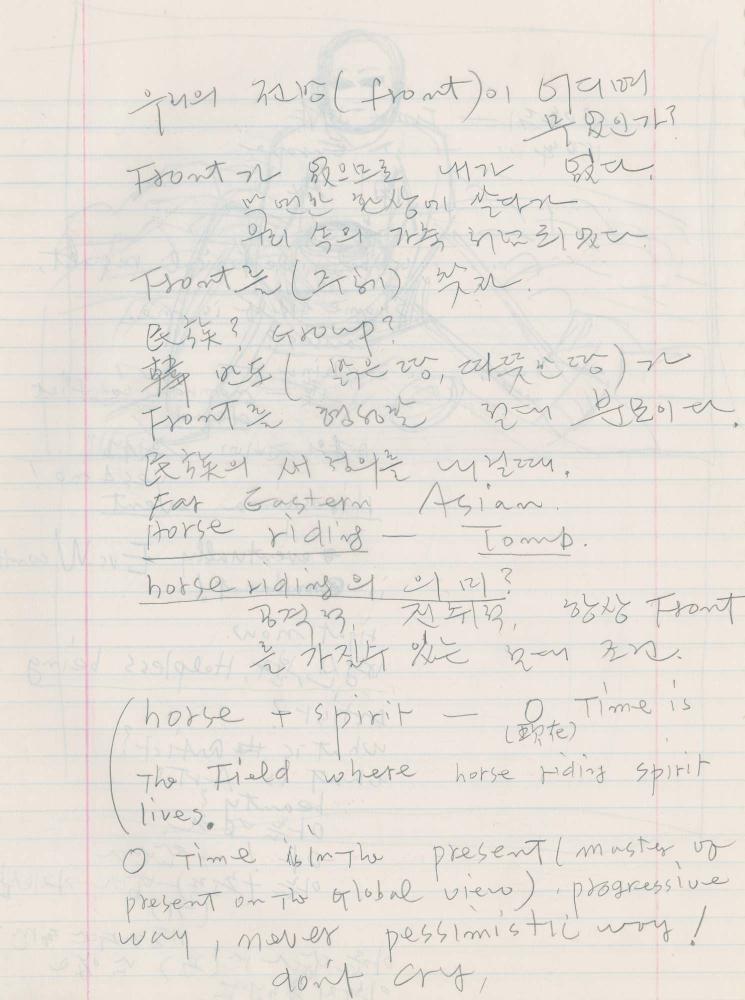 우리의 전방(front)이 어디며
무엇인가?
Front가 없으므로 내가 없다.
막연한 환상에 살다가
우리 속의 가축 되었다.
Front를 (주체) 찾자.
民族? Group?
韓 반도( 밝은 땅, 따뜻한 땅)가
Front를 형성할 절대 부모이다.
民族의 새 정의를 내릴때.
Far Eastern Asian.
Horse riding — Tomb.
horse riding의 의미?
공격적, 전위적, 항상 Front
를 가질수 있는 절대 조건.
(horse + spirit — 0 Time is
(現在)
The Field where horse riding spirit
lives.
0 Time is in The present (master of
present on The Global view). progressive
way, never pessimistic way!
don't cry,